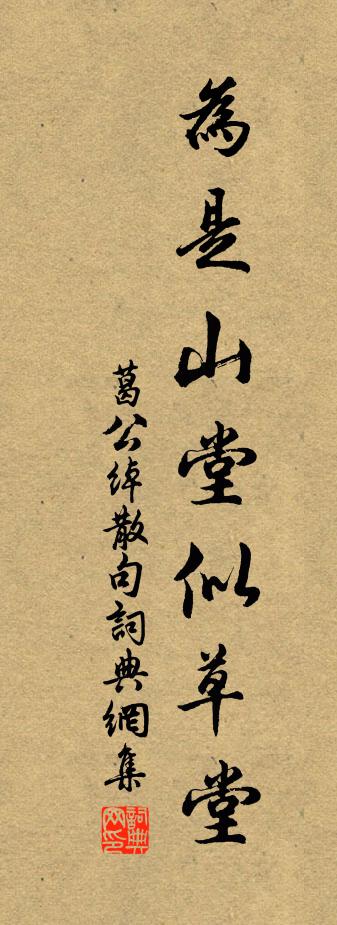 為是山堂似草堂
葛公綽散句詞典網集
詞典網印